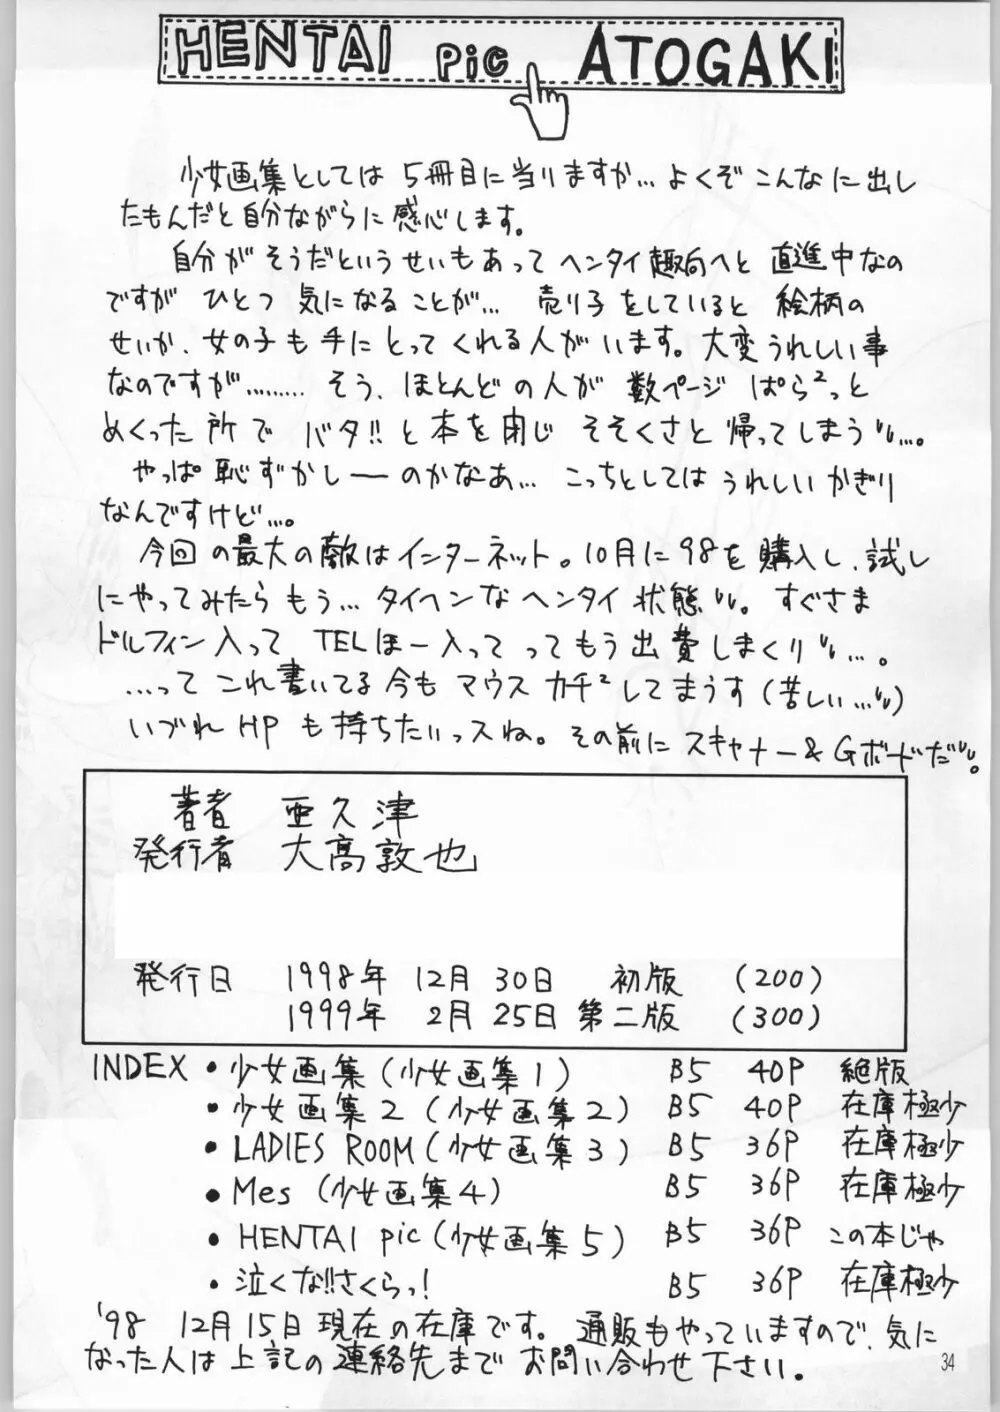 HENTAI pic ATOGAKI
少女画集としては5冊目に当りますか…よくぞこんなに出し
たもんだと自分ながらに感心します。
自分がそうだというせいもあってヘンタイ趣向へと直進中なの
ですが ひとつ気になることが… 売り子をしていると絵柄の
せいか、女の子も手にとってくれる人がいます。大変うれしい事
なのですが……… そう、ほとんどの人が数ページぱら²っと
めくった所でバタ!!と本を閉じそそくさと帰ってしまう…。
やっぱ恥ずかしーのかなあ… こっちとしてはうれしいかぎり
なんですけど…。
今回の最大の敵はインターネット。10月に98を購入し、試し
にやってみたらもう… タイヘンなヘンタイ状態。すぐさま
ドルフィン入って TELほー入ってってもう出費しまくり…。
…ってこれ書いてる今もマウスカチ²してまうす(苦しい…)
いづれHPも持ちたいっスね。その前にスキャナー&Gボードだ。
著者 亜久津
発行者 大高敦也
発行日 1998年 12月 30日 初版 (200)
1999年 2月 25日 第二版 (300)
INDEX ・少女画集(少女画集1) B5 40P 絶版
・少女画集2 (少女画集2) B5 40P 在庫極少
・LADIES ROOM(少女画集3) B5 36P 在庫極少
・Mes (少女画集4) B5 36P 在庫極少
・HENTAI pic(少女画集5) B5 36P この本じゃ
・泣くな!!さくらっ! B5 36P 在庫極少
'98 12月15日現在の在庫です。通販もやっていますので、気に
なった人は上記の連絡先までお問い合わせ下さい.
34